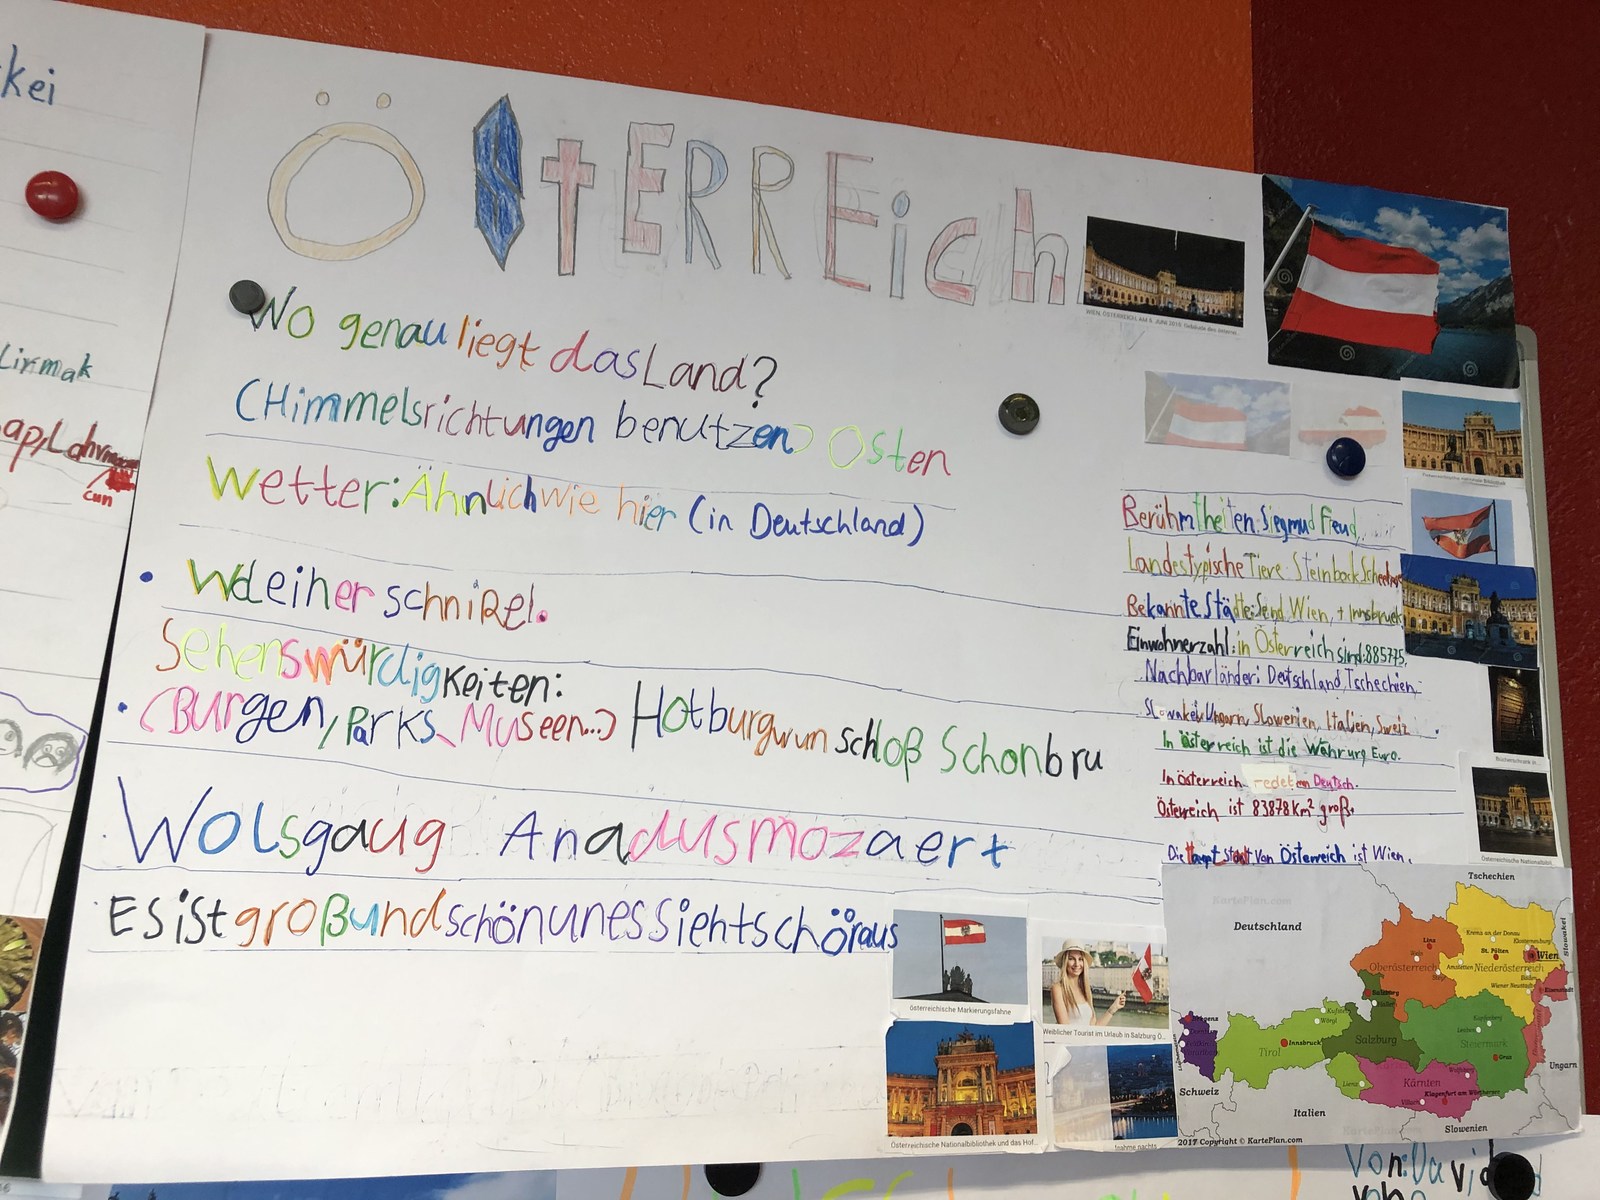 kei
Lirmak
ÖStERREich
Wo genau liegt das Land?
(Himmelsrichtungen benutzen) Osten
Wetter: Ähnlich wie hier (in Deutschland)
schnißel.
Sehenswürdigkeiten:
(Burgen, Parks, Museen...) Hotburgwun schloß Schonbru
Wolsgaug Anadusmozaert
Es ist groß und schön unes sieht schön aus
Berühmtheiten: Siegmud Freud,
Landestypische Tiere: Steinbock
Bekannte Städte: Send Wien, + Innsbruck
Einwohnerzahl: in Österreich sind: 885775,
Nachbarländer: Deutschland, Tschechien,
Slowakei, Ungarn, Slowenien, Italien, Sweiz
In österreich ist die Währung Euro.
In österreich redet Deutsch.
Österreich ist 83878 Km² groß.
Die Haupt Stadt von Österreich ist Wien.
österreichische Markierungsfahne
Weiblicher Tourist im Urlaub in Salzburg Ö...
Österreichische Nationalbibliothek und das Hof...
KartePlan.com
Tschechien
Deutschland
Slowakei
Linz
Krems an der Donau
St. Pölten
Wien
Oberösterreich
Amstetten
Niederösterreich
Wiener Neustadt
Eisenstadt
Salzburg
Bregenz
Tirol
Innsbruck
Salzburg
Steiermark
Graz
Lienz
Kärnten
Klagenfurt am Wörthersee
Villach
Schweiz
Ungarn
Italien
Slowenien
2017 Copyright © KartePlan.com
Von: David